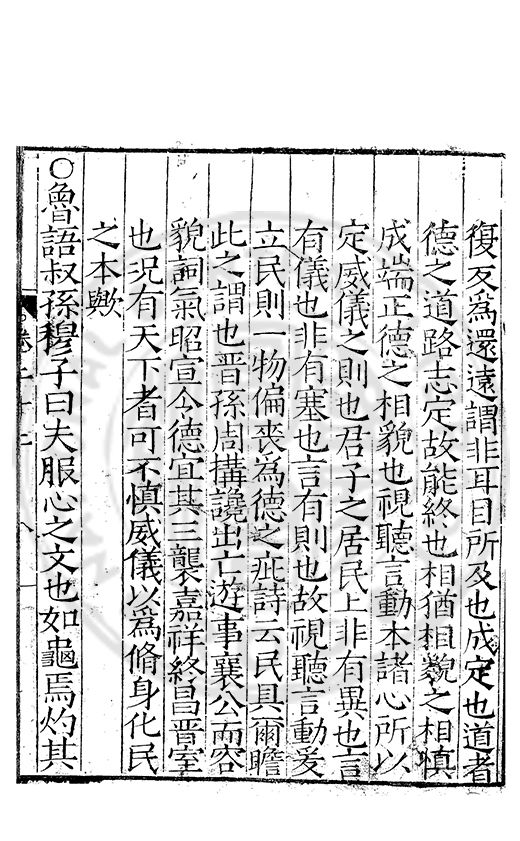 復反為還遠謂非耳目所及也成定也道者
德之道路志定故能終也相猶相貌之相慎
成端正德之相貌也視聽言動本諸心所以
定威儀之則也君子之居民上非有異也言
有儀也非有塞也言有則也故視聽言動爰
立民則一物偏喪為德之疵詩云民具爾瞻
此之謂也晉孫周搆讒出亡遊事襄公而容
貌詞氣昭宣令德宜其三襲嘉祥終昌晉室
也况有天下者可不慎威儀以為脩身化民
之本歟
○魯語叔孫穆子曰夫服心之文也如龜焉灼其